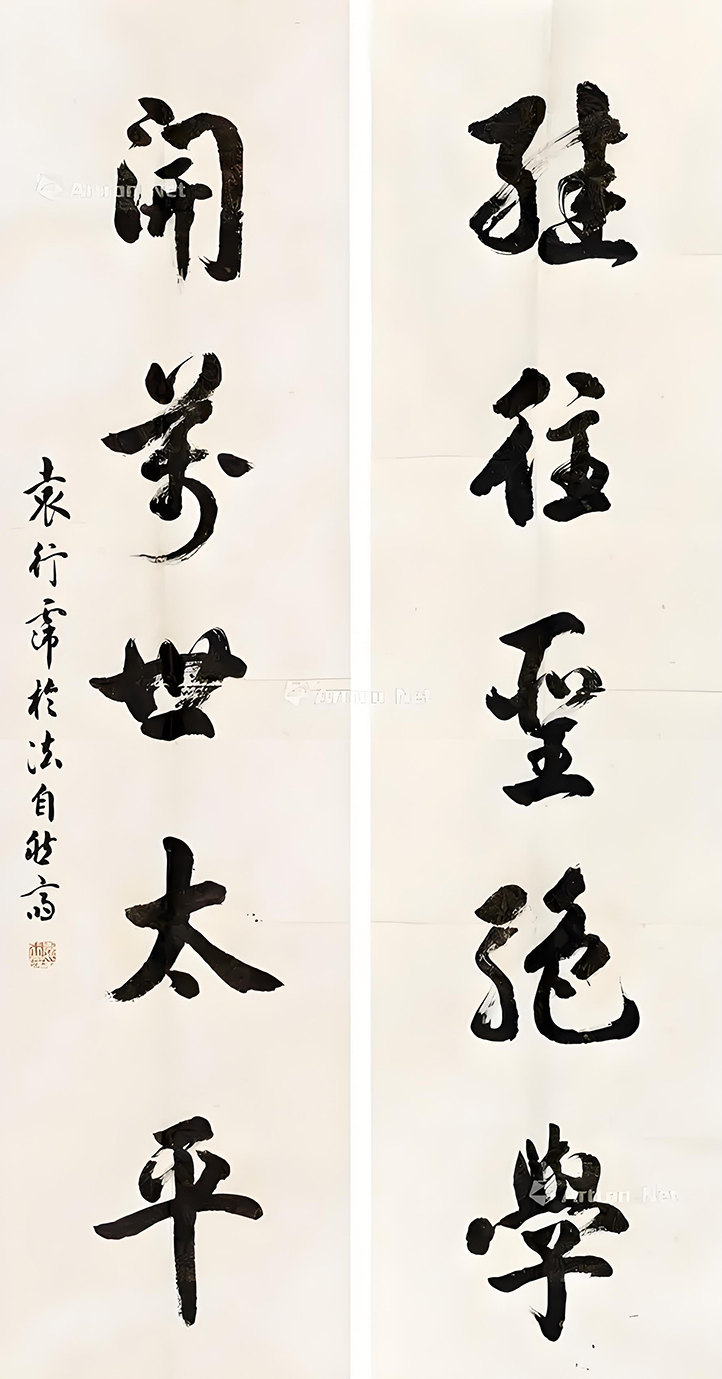 繼往聖絕學
開萬世太平
袁行霈於法自然齋
Artron.Net
Artron.Net
Artron.Net